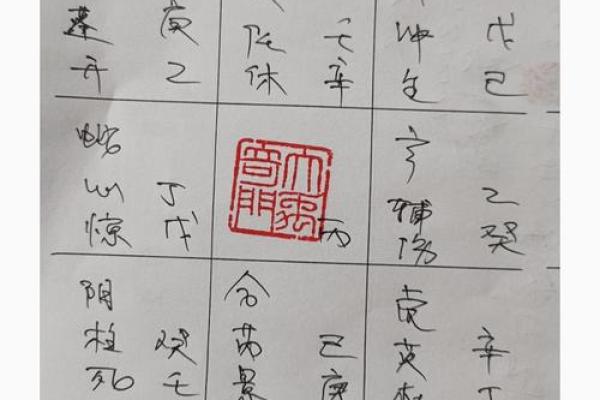 蓬 庚
开 乙
任 壬
休 辛
冲 戊
生 己
蛇
心 丁
惊 戊
丙
辅 乙
伤 癸
阴
柱 癸
死 壬
合
芮 己
景 庚
虎
英 辛
杜 丁